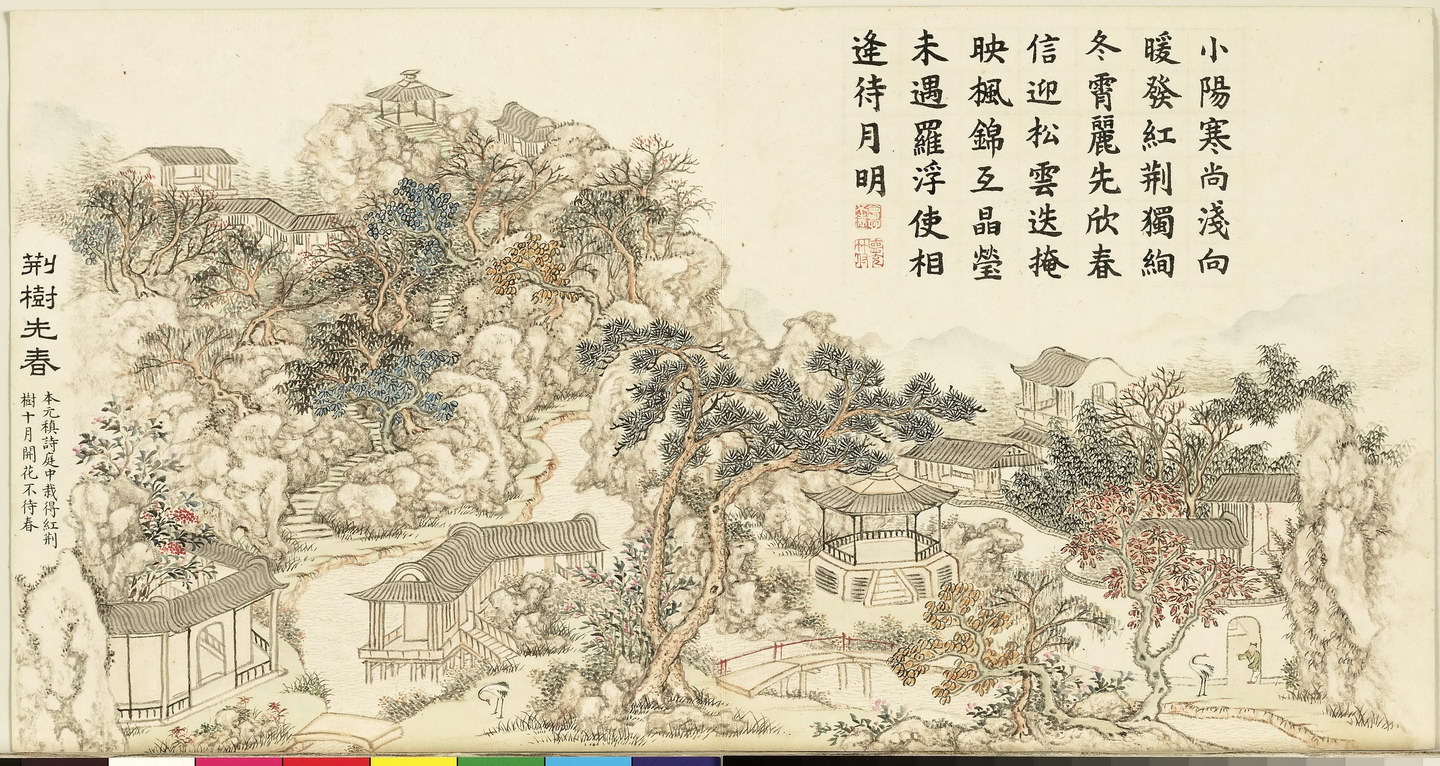 小陽寒尚淺向
暖發紅荆獨絢
冬霄麗先欣春
信迎松雲迭掩
映楓錦互晶瑩
未遇羅浮使相
逢待月明
荆樹先春
本元稹詩庭中栽得紅荆
樹十月開花不待春